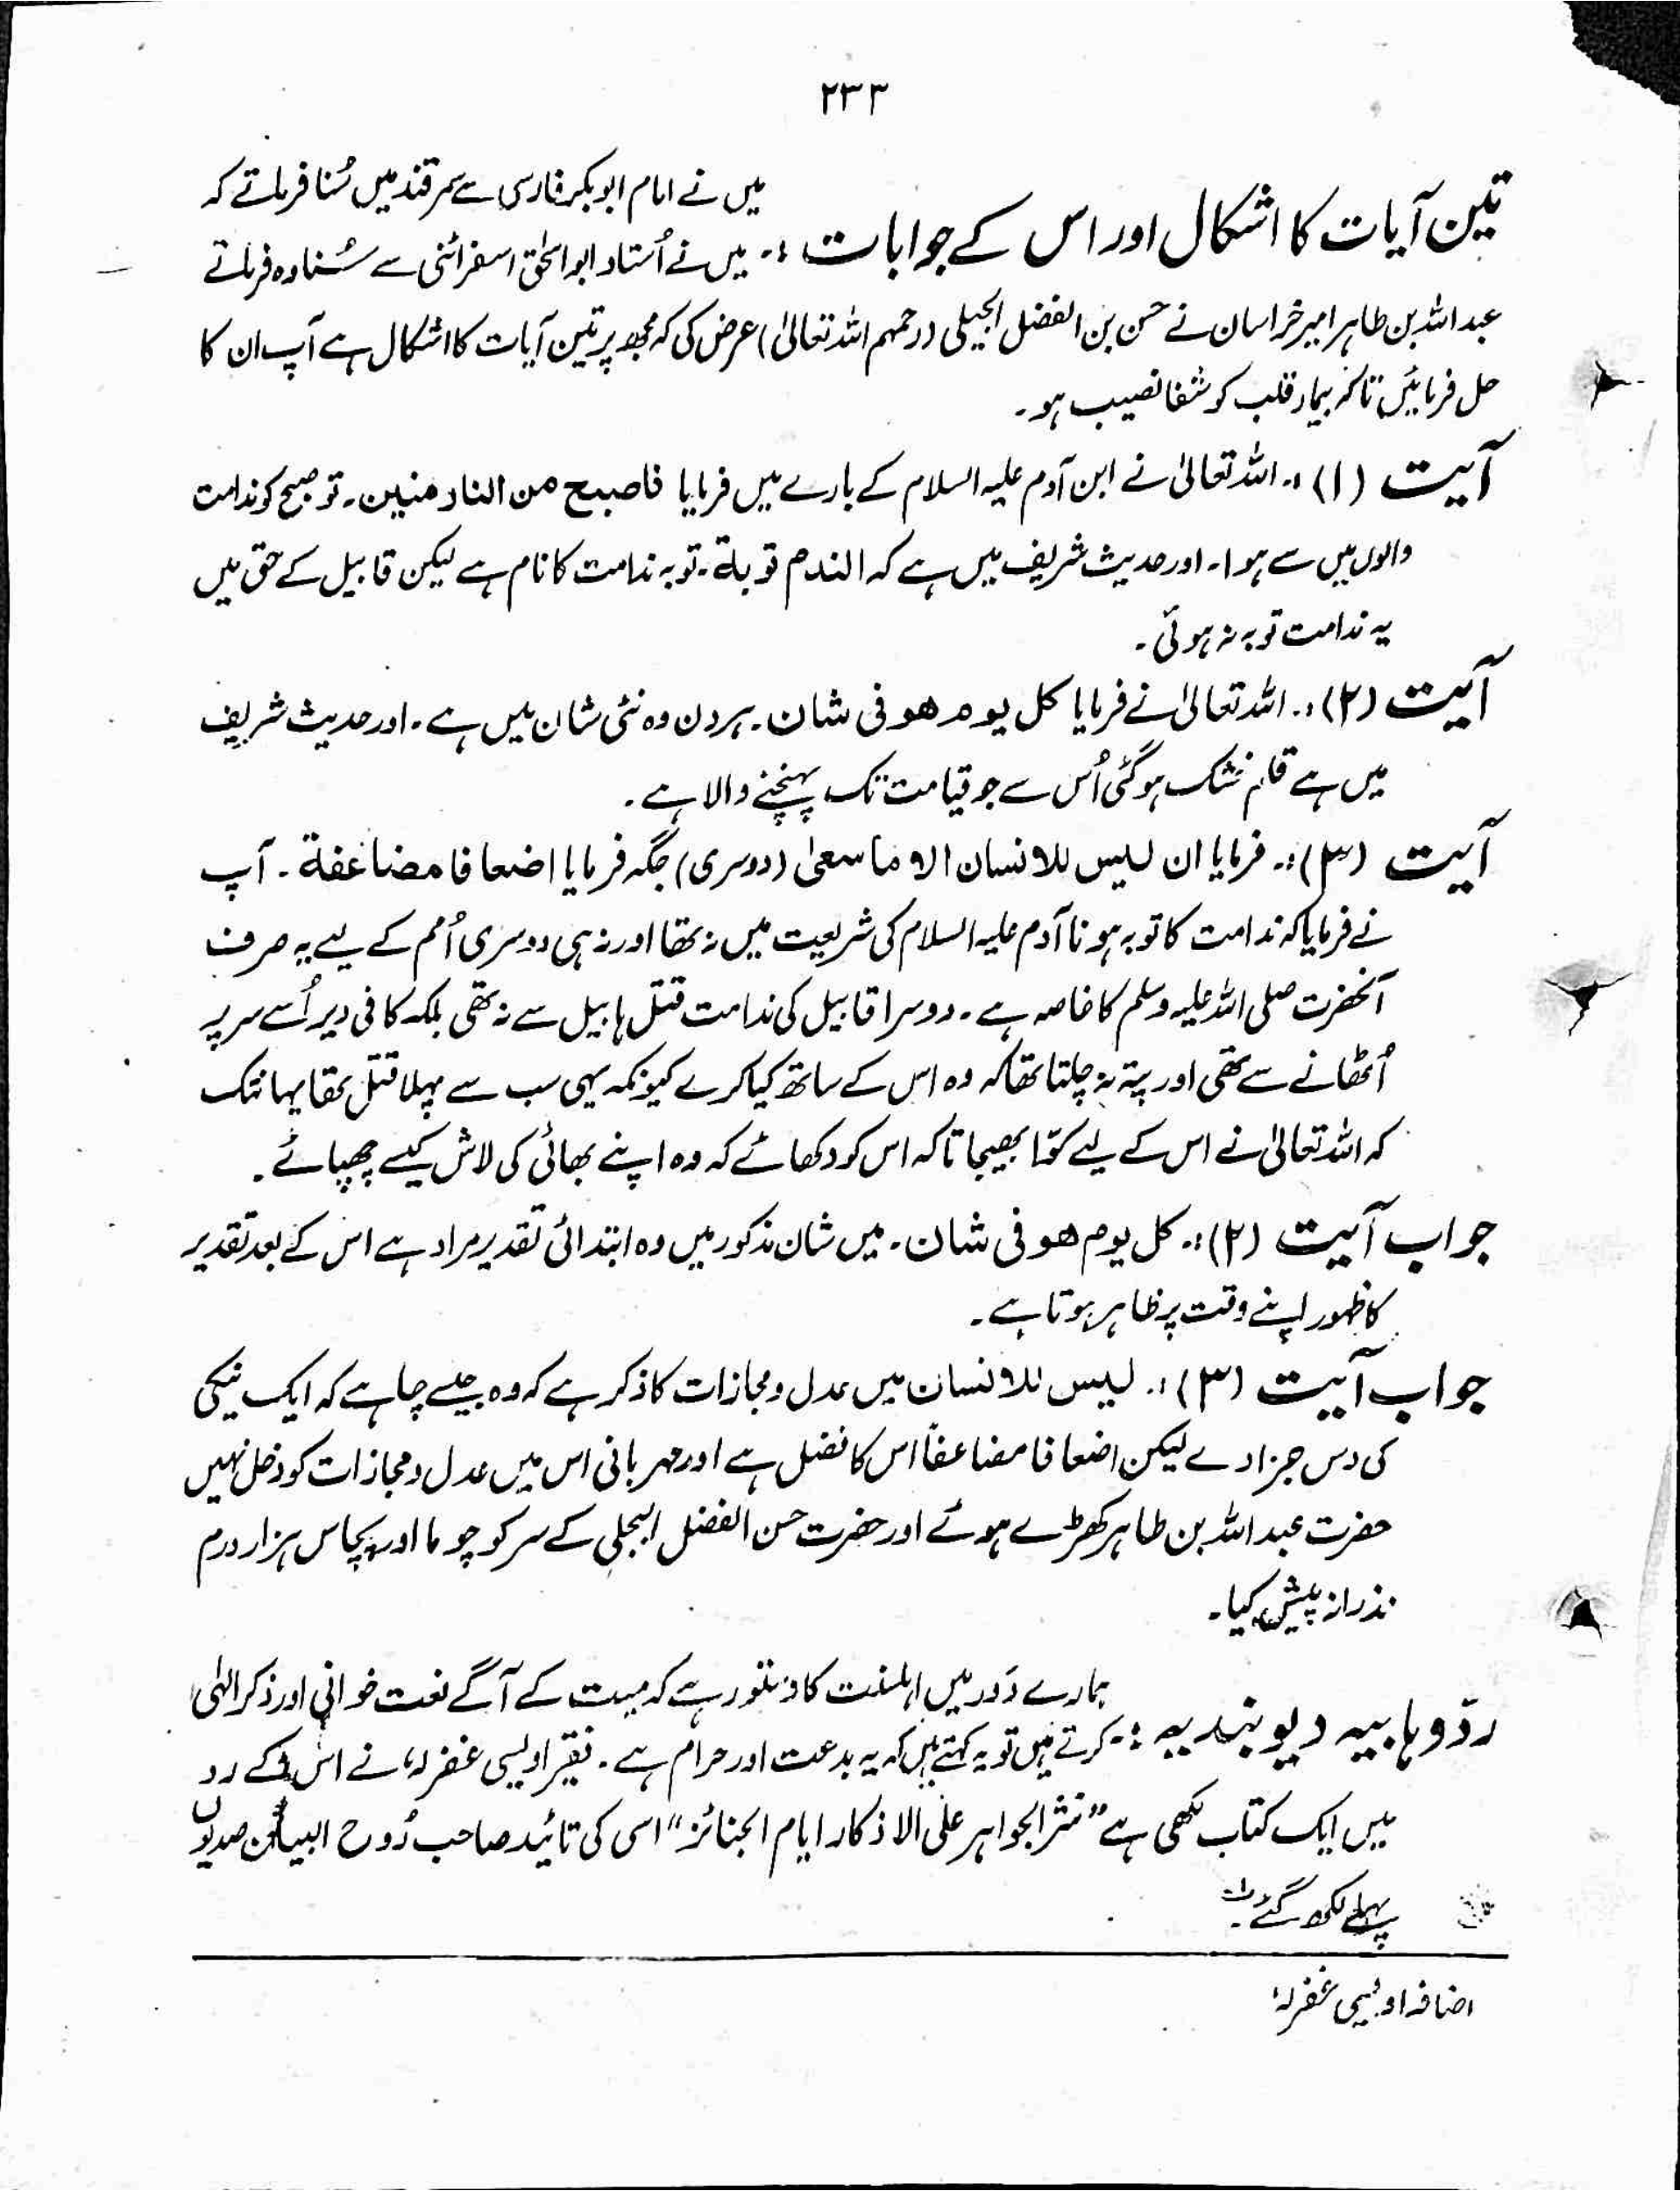 ۲۳۳
تین آیات کا اشکال اور اس کے جوابات :۔ میں نے امام ابوبکر فارسی سے سمرقند میں سُنا فرماتے کہ
میں نے اُستاد ابو اسحٰق اسفرائنی سے سُنا وہ فرماتے
عبد اللہ بن طاہر امیر خراسان نے حسن بن الفضل الجیلی (رحمہم اللہ تعالیٰ) عرض کی کہ مجھ پر تین آیات کا اشکال ہے آپ ان کا
حل فرمائیں تاکہ بیمار قلب کو شفا نصیب ہو۔
آیت (۱) :۔ اللہ تعالیٰ نے ابن آدم علیہ السلام کے بارے میں فرمایا فاصبح من الناد منین۔ تو صبح کو ندامت
والوں میں سے ہوا۔ اور حدیث شریف میں ہے کہ الندم توبة۔ توبہ ندامت کا نام ہے لیکن قابیل کے حق میں
یہ ندامت توبہ نہ ہوئی۔
آیت (۲) :۔ اللہ تعالیٰ نے فرمایا کل یوم ھو فی شان۔ ہر دن وہ نئی شان میں ہے۔ اور حدیث شریف
میں ہے قلم خشک ہوگئی اُس سے جو قیامت تک پہنچنے والا ہے۔
آیت (۳) :۔ فرمایا ان لیس للانسان الا ما سعیٰ (دوسری) جگہ فرمایا اضعافا مضاعفة۔ آپ
نے فرمایا کہ ندامت کا توبہ ہونا آدم علیہ السلام کی شریعت میں نہ تھا اور نہ ہی دوسری اُمم کے لیے یہ صرف
آنحضرت صلی اللہ علیہ وسلم کا خاصہ ہے۔ دوسرا قابیل کی ندامت قتل ہابیل سے نہ تھی بلکہ کافی دیر اُسے سر پر
اُٹھانے سے تھی اور پتہ نہ چلتا تھا کہ وہ اس کے ساتھ کیا کرے کیونکہ یہی سب سے پہلا قتل تھا یہانتک
کہ اللہ تعالیٰ نے اس کے لیے کوّا بھیجا تاکہ اس کو دکھائے کہ وہ اپنے بھائی کی لاش کیسے چھپائے۔
جواب آیت (۲) :۔ کل یوم ھو فی شان۔ میں شان مذکور میں وہ ابتدائی تقدیر مراد ہے اس کے بعد تقدیر
کا ظہور اپنے وقت پر ظاہر ہوتا ہے۔
جواب آیت (۳) :۔ لیس للانسان میں عدل و مجازات کا ذکر ہے کہ وہ جیسے چاہے کہ ایک نیکی
کی دس جزا دے لیکن اضعافا مضاعفاً اس کا فضل ہے اور مہربانی اس میں عدل و مجازات کو دخل نہیں
حضرت عبد اللہ بن طاہر کھڑے ہوئے اور حضرت حسن الفضل البجلی کے سر کو چوما اور پچاس ہزار درم
نذرانہ پیش کیا۔
ردّ وہابیہ دیوبندیہ :۔ ہمارے دَور میں اہلسنت کا دستور ہے کہ میت کے آگے نعت خوانی اور ذکر الہٰی
کرتے ہیں تو یہ کہتے ہیں کہ یہ بدعت اور حرام ہے۔ فقیر اویسی غفرلہٗ نے اس کے رد
میں ایک کتاب لکھی ہے ”نثر الجواہر علی الاذکار ایام الجنائز“ اسی کی تائید صاحب رُوح البیان صدیوں
پہلے لکھ گئے۔
اضافہ اویسی غفرلہٗ